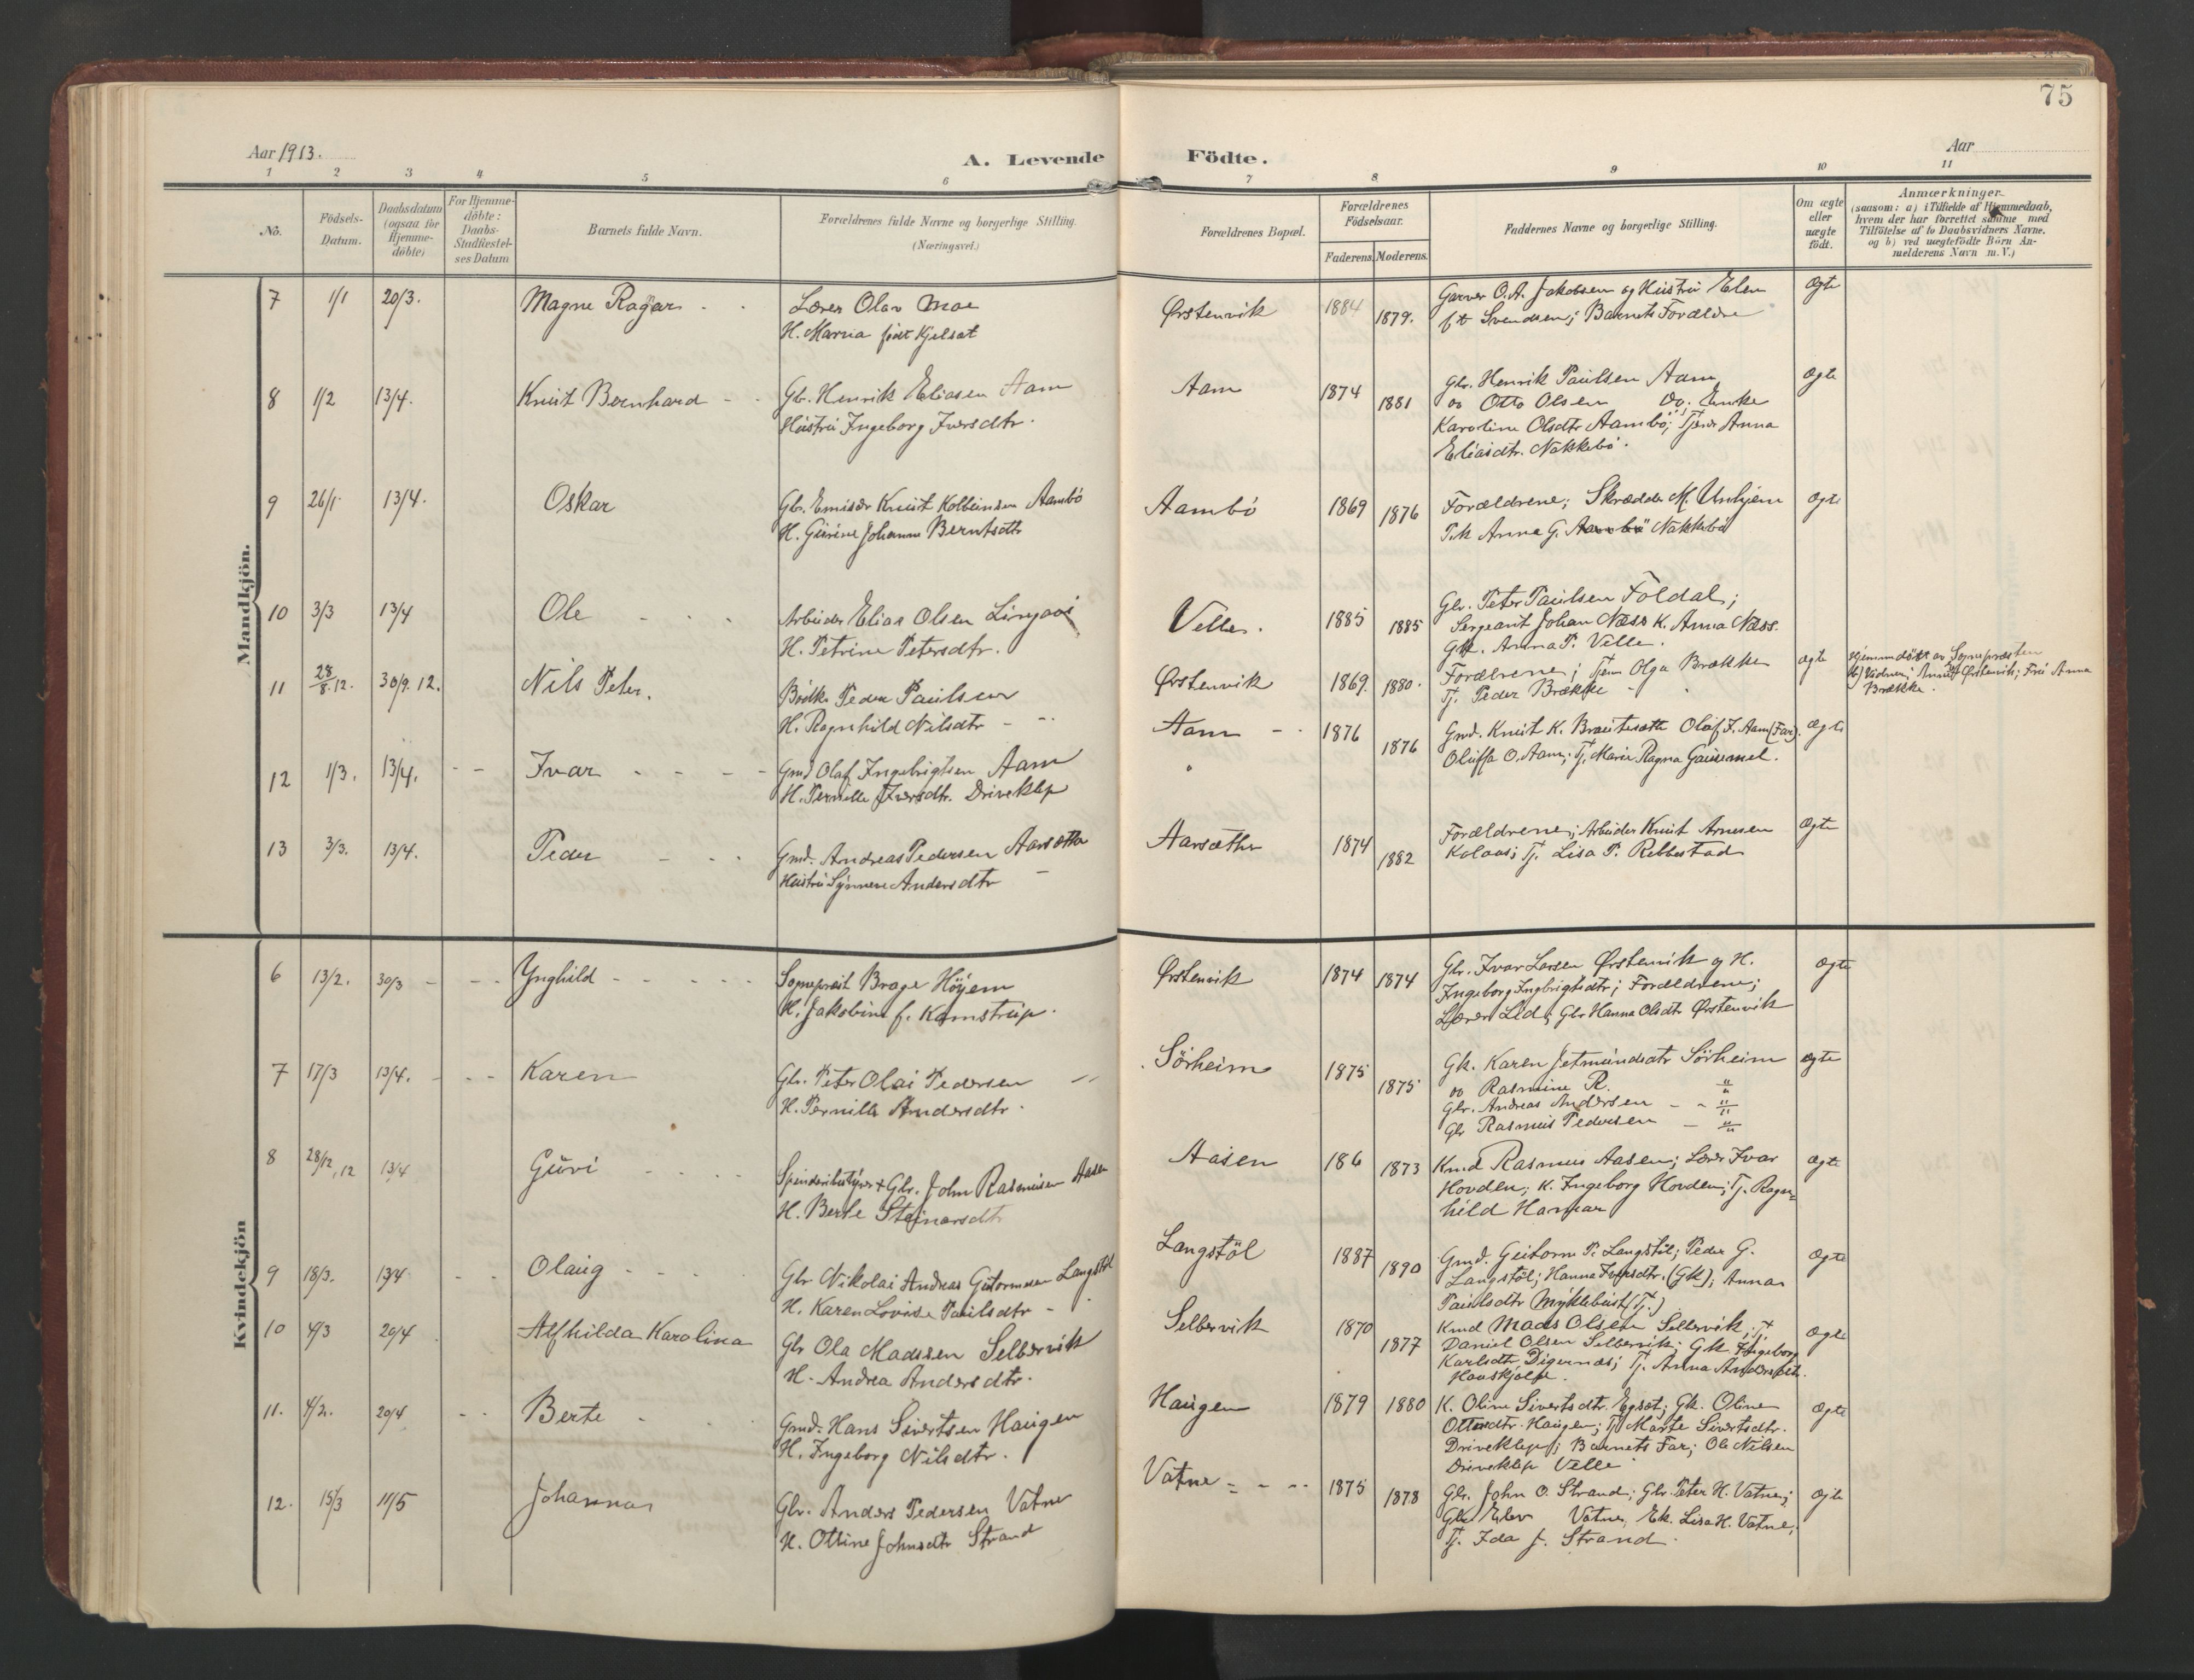 75
Aar 1913.
A. Levende Födte.
Aar
1 2 3 4 5 6 7 8 9 10 11
No.
Födsels-
Datum.
Daabsdatum
(ogsaa for
Hjemme-
döbte)
For Hjemme-
döbte:
Daabs-
Stadfæstel-
ses Datum
Barnets fulde Navn.
Forældrenes fulde Navne og borgerlige Stilling.
(Næringsvei.)
Forældrenes Bopæl.
Forældrenes
Födselsaar.
Faderens. Moderens.
Faddernes Navne og borgerlige Stilling.
Om ægte
eller
uægte
födt.
Anmærkninger
(saasom: a) i Tilfælde af Hjemmedaab,
hvem der har forrettet samme med
Tilföielse af to Daabsvidners Navne,
og b) ved uægtefödte Börn An-
melderens Navn m. V.)
Mandkjön.
7 1/1 20/3. Magne Ragnar Lærer Olav Moe Ørstenvik 1884 1879. Garver O. A. Jakobsen og Hustru Elen Ægte
H. Marna født Kjelsat
født Svendsen; Barnets Forældre
8 1/2 13/4. Knut Bernhard Gbr. Henrik Eliasen Aam Aam 1874 1881 Gbr. Henrik Paulsen Aam Ægte
Hustru Ingeborg Iversdtr.
og Otto Olsen Do. Enke
Karoline Olsdtr Aambö; Tjener Anna
Eliasdtr. Nakkebö.
9 26/1 13/4. Oskar Gbr. Emisær Knut Kolbeinsen Aambö Aambö 1869 1876 Forældrene; Skrædder M. Unhjem Ægte
H. Gurine Johanne Berntsdtr
Pik Anna G. Nakkebö
10 3/3 13/4 Ole Arbeider Elias Olsen Velle. 1885 1885 Gbr. Peter Paulsen Foldal;
H. Petrine Petersdtr.
Sergeant Johan Næss K. Anna Næss.
Gk. Anna P. Velle.
11 28/8.12. 30/9.12. Nils Peter. Peder Paulsen Ørstenvik 1869. 1880. Forældrene; Tjen Olga Brække ægte Hjemmedöbt av Sognepræsten
H. Ragnhild Nilsdtr
Tj. Peder Brække
Vidner; Ørstenvik; Fru Anna
Brække.
12 1/3. 13/4. Ivar Gmd Olaf Ingebrigtsen Aam Aam 1876 1876 Gmd. Knut K. Brautesætk Olaf I. Aam (Far). Ægte
H. Pernille Iversdtr. Driveklep
Oluffa O. Aam; Tj. Marie Ragna Gausemel.
13 3/3. 13/4. Peder Gmd. Andreas Pedersen Aarsætha Aarsæther 1874 1882 Forældrene; Arbeider Knut Arnesen Ægte
Hustru Synneve Andersdtr
Kolaas; Tj. Lisa P. Rebbestad
Kvindekjön
6 13/2. 30/3 Ynghild Sogneprest Brage Höyem Ørstenvik 1874 1874 Gbr. Ivar Larsen Ørstenvik og H. Ægte
H. Jakobine f. Kamstrup.
Ingeborg Ingbrigtsdtr; Forældrene;
Lærer Lid; Gbr Hanna Olsdtr Ørstenvik
7 17/3 13/4. Karen Gbr. Peter Olai Pedersen Sörheim 1875 1875 Gk. Karen Jetmundsdtr Sörheim ægte
H. Pernille Andersdtr.
og Rasmine R. "
Gbr. Andreas Andersen - "
Gbr Rasmus Pedersen - "
8 28/12.12 13/4 Guri Spinderibestyrer & Gbr. John Rasmusen Aasen Aasen 186 1873 Kmd Rasmus Aasen; Lærer Ivar Ægte
H. Berte Steinarsdtr
Hovden; K. Ingeborg Hovden; Tj. Ragn-
hild Hamar
9 18/3. 13/4 Olaug Gbr Nikolai Andreas Guttormsen Langstöl Langstöl 1887 1890 Gmd. Guttorm P. Langstöl; Peder G. Ægte
H. Karen Lovise Paulsdtr
Langstöl; Hanna Iversdtr. (Gk); Anna
Paulsdtr Myklebust (Tj.)
10 4/3 20/4 Alfhilda Karolina Gbr Ola Madssen Selbervik Selbervik 1870 1877 Kmd Mads Olsen Selbervik; Tj. Ægte
H. Andrea Andersdtr.
Daniel Olsen Selbervik; Gk Ingeborg
Karlsdtr Digernæs; Tj. Anna Andersdtr.
11. 4/2. 20/4 Berte Gmd. Hans Sivertsen Haugen Haugen 1879 1880 K. Oline Sivertsdtr. Egset; Gk. Oline Ægte
H. Ingeborg Nilsdtr.
Ottesdtr. Haugen; Tj Marte Sivertsdtr.
Driveklep; Barnets Far; Ole Nilsen
Driveklep Velle
12. 15/3 11/5 Johanna Gbr. Anders Pedersen Vatne Vatne 1875 1878 Gbr. John O. Strand; Gbr. Peter H. Vatne; Ægte
H. Ottine Johnsdtr Strand
Vatne, Ek. Lisa H. Vatne;
Tj. Ida J. Strand.